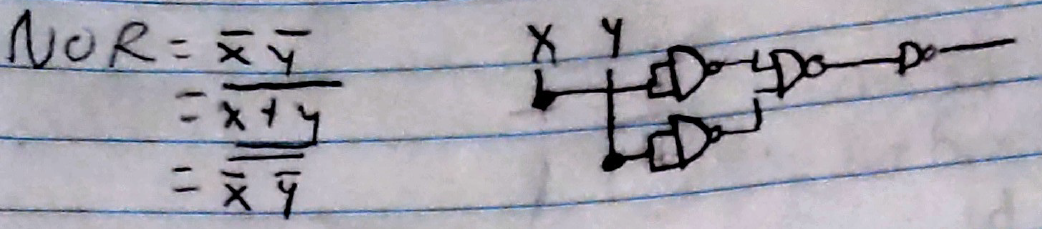 NOR = x̅ y̅
X Y
= \overline{x + y}
= \overline{\overline{x̅ y̅}}